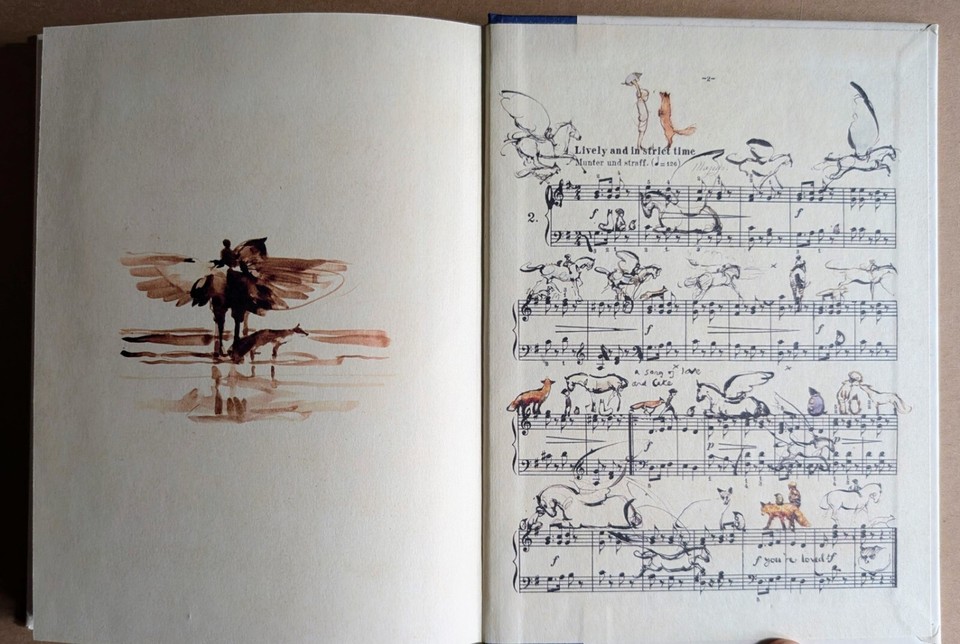 -2-
Lively and in strict time
Munter und straff. (♩=126)
2.
f
f
f
a song of love
and cake
f
p
p
f
f you're loved! f